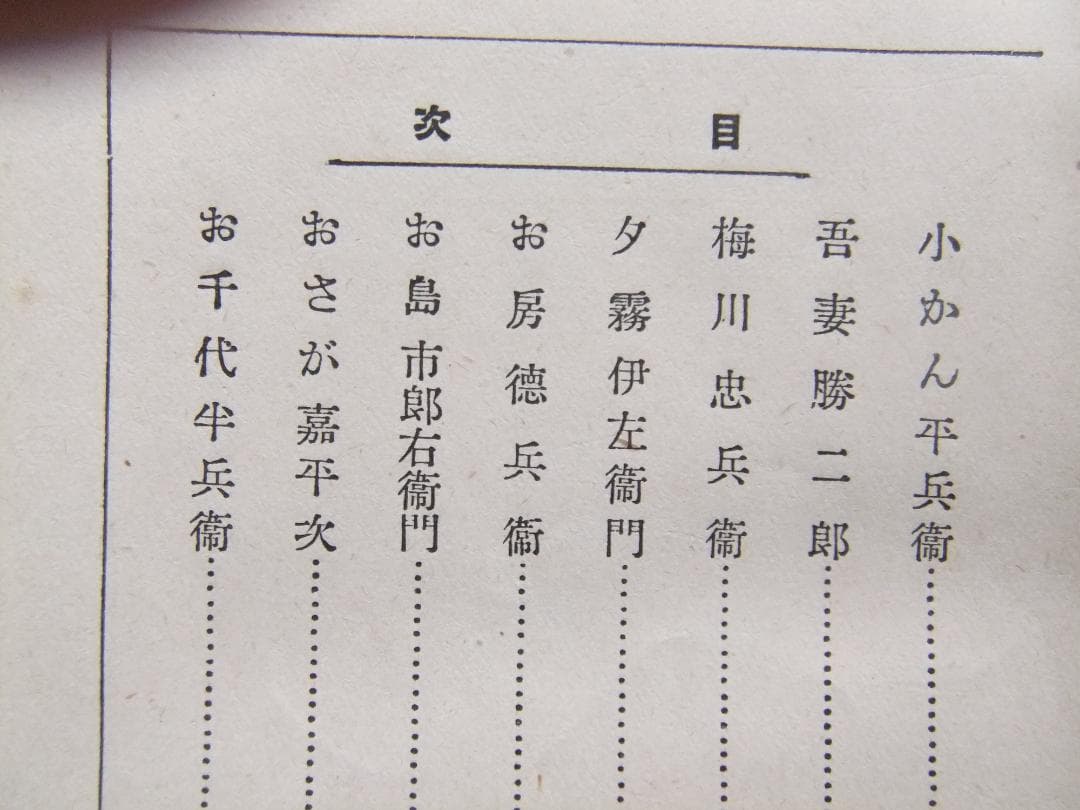 目次
小かん平兵衞
吾妻勝二郎
梅川忠兵衞
夕霧伊左衞門
お房德兵衞
お島市郎右衞門
おさが嘉平次
お千代半兵衞